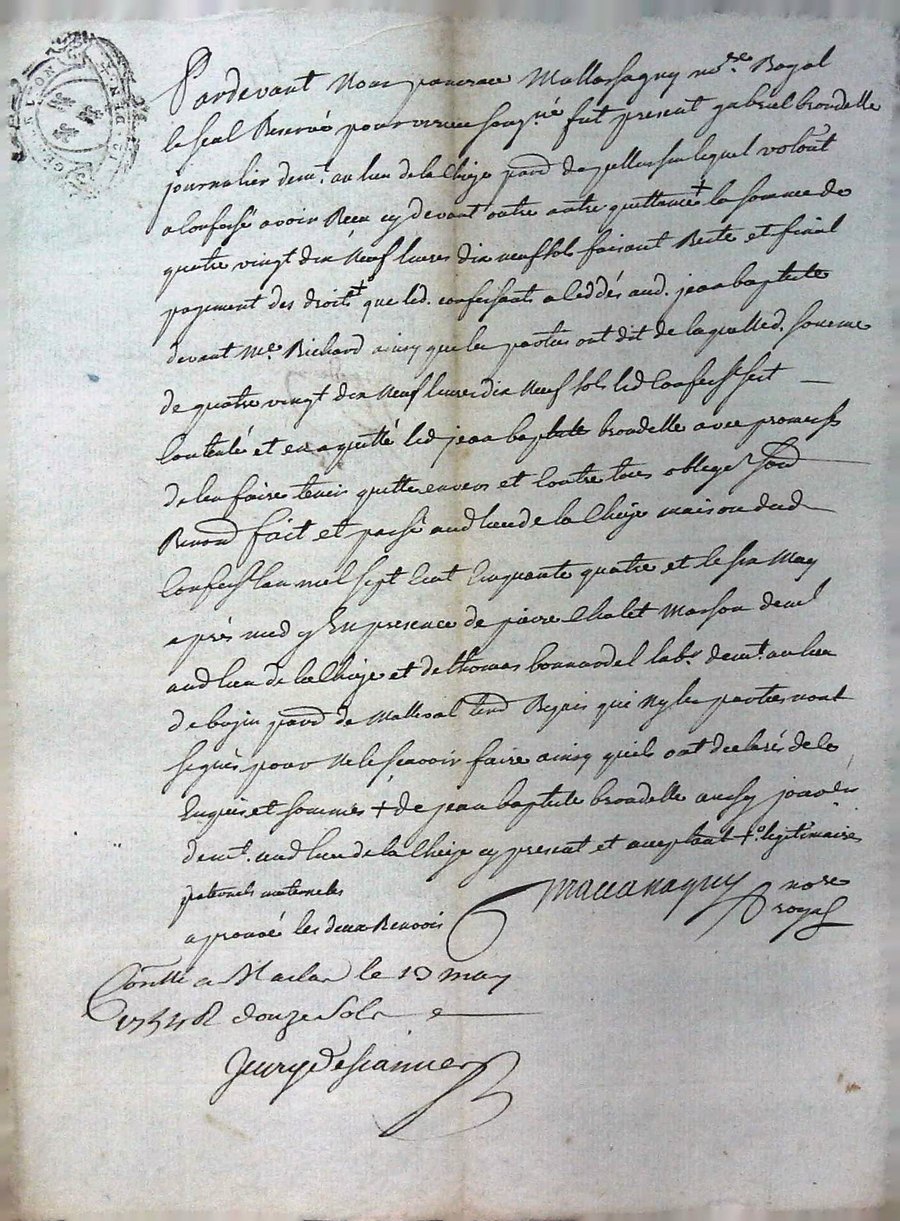 Pardevant Nous Mallassagny no.re Royal
le seal Reservé pour vereu soug.né fut present gabriel brondelle
journalier dem.t au lieu de la Chieze par.d de pellussin lequel volont
a Confessé avoir Receu cy devant outre autre quittance + la somme de
quatre vingt dix Neuf livres dix neuf sols faisant Reste et final
payement des droits + que led. confessant a ceddés aud. jean baptiste
devant Me. Richard ainsy que les parties ont dit de laquelled. somme
de quatre vingt dix Neuf livres dix Neuf sols led Confess.t sest
Contenté et en a quitté led jean baptiste brondelle avec promess
de len faire tenir quitte envers et Contre tous obligeّ
Renond fait et passé aud lieu de la Chieze maison dud
Confess.t lan mil sept Cent Cinquante quatre et le six May
après midy En presence de pierre Chalet Masson dem.t
aud lieu de la Chieze et de thomas bonnardel lab.r dem.t au lieu
de bojin par.d de Malleval Requis qui Ny les parties nont
signés pour Ne le scavoir faire ainsy quils ont declarés de ce
Enquis et sommés + de jean baptiste brondelle aussy
dem.t aud lieu de la Chieze cy present et acceptant +o legitimaires
paternels maternels
aprouvé les deux Renvois
no.re
royal
Con.lle a Maclas le 10 may
1754 R douze sols